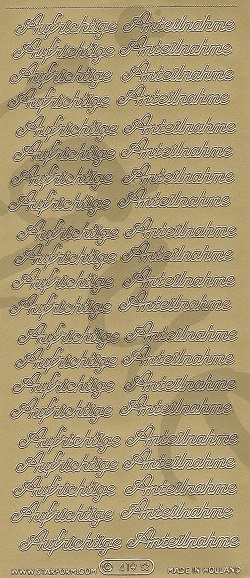 Aufrichtige Anteilnahme
Aufrichtige Anteilnahme
Aufrichtige Anteilnahme
Aufrichtige Anteilnahme
Aufrichtige Anteilnahme
Aufrichtige Anteilnahme
Aufrichtige Anteilnahme
Aufrichtige Anteilnahme
Aufrichtige Anteilnahme
Aufrichtige Anteilnahme
Aufrichtige Anteilnahme
Aufrichtige Anteilnahme
Aufrichtige Anteilnahme
Aufrichtige Anteilnahme
Aufrichtige Anteilnahme
Aufrichtige Anteilnahme
Aufrichtige Anteilnahme
Aufrichtige Anteilnahme
Aufrichtige Anteilnahme
Aufrichtige Anteilnahme
Aufrichtige Anteilnahme
WWW.STARFORM.COM © 419 ☆ MADE IN HOLLAND